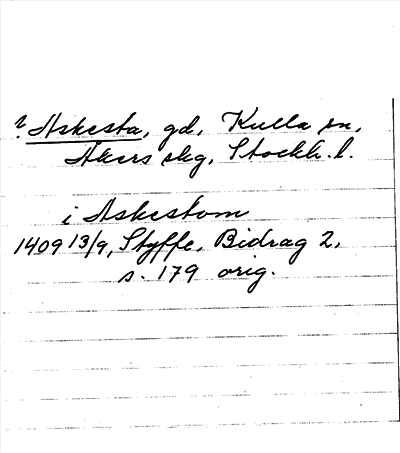 ? Askesta, gd, Kulla sn,
Åkers skg, Stockh. l.
i Askestom
1409 13/9, Styffe, Bidrag 2,
s. 179 orig.